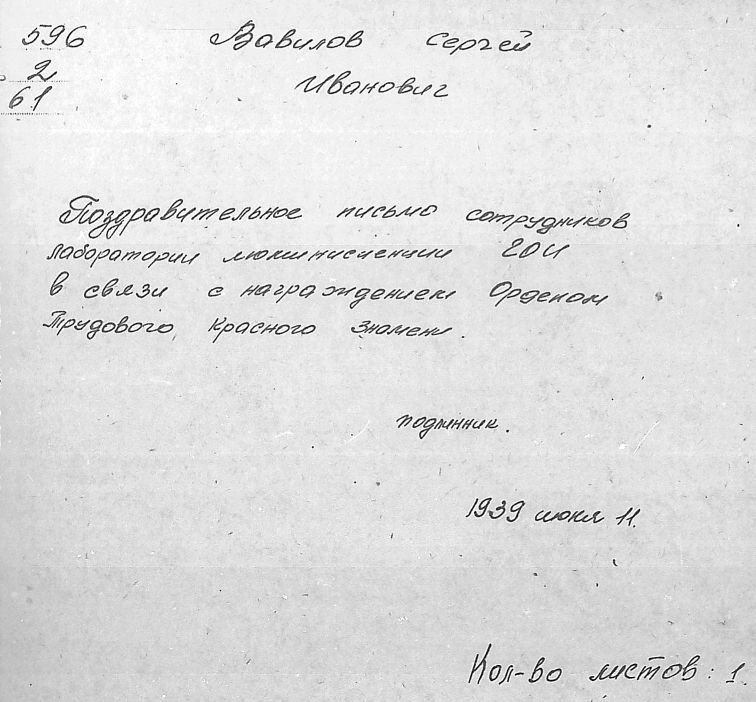 596
2
61
Вавилов Сергей
Иванович
Поздравительное письмо сотрудников
лаборатории люминисценции ГОИ
в связи с награждением Орденом
Трудового Красного Знамени.
подлинник.
1939 июня 11.
Кол-во листов: 1